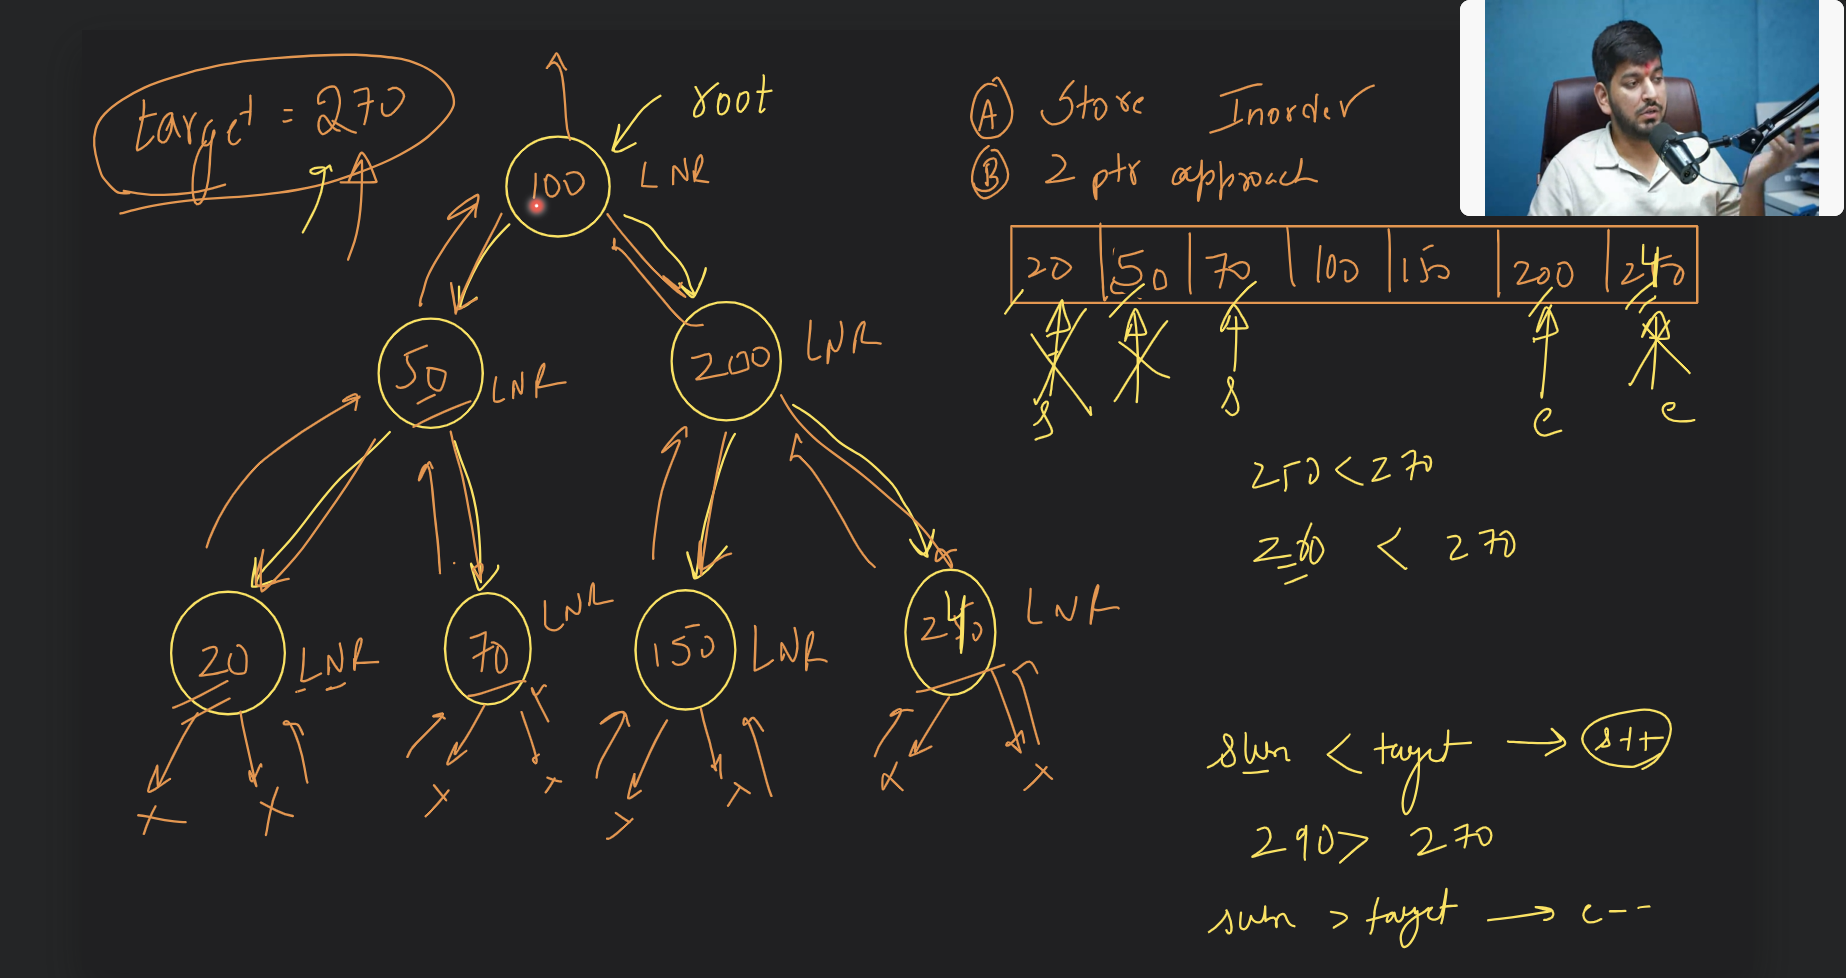 target = 270
root
100 LNR
50 LNR
200 LNR
20 LNR
70 LNR
150 LNR
240 LNR
X X
A Store Inorder
B 2 ptr approach
20 50 70 100 150 200 240
s s e e
250 < 270
260 < 270
sum < target → s++
290 > 270
sum > target → e--